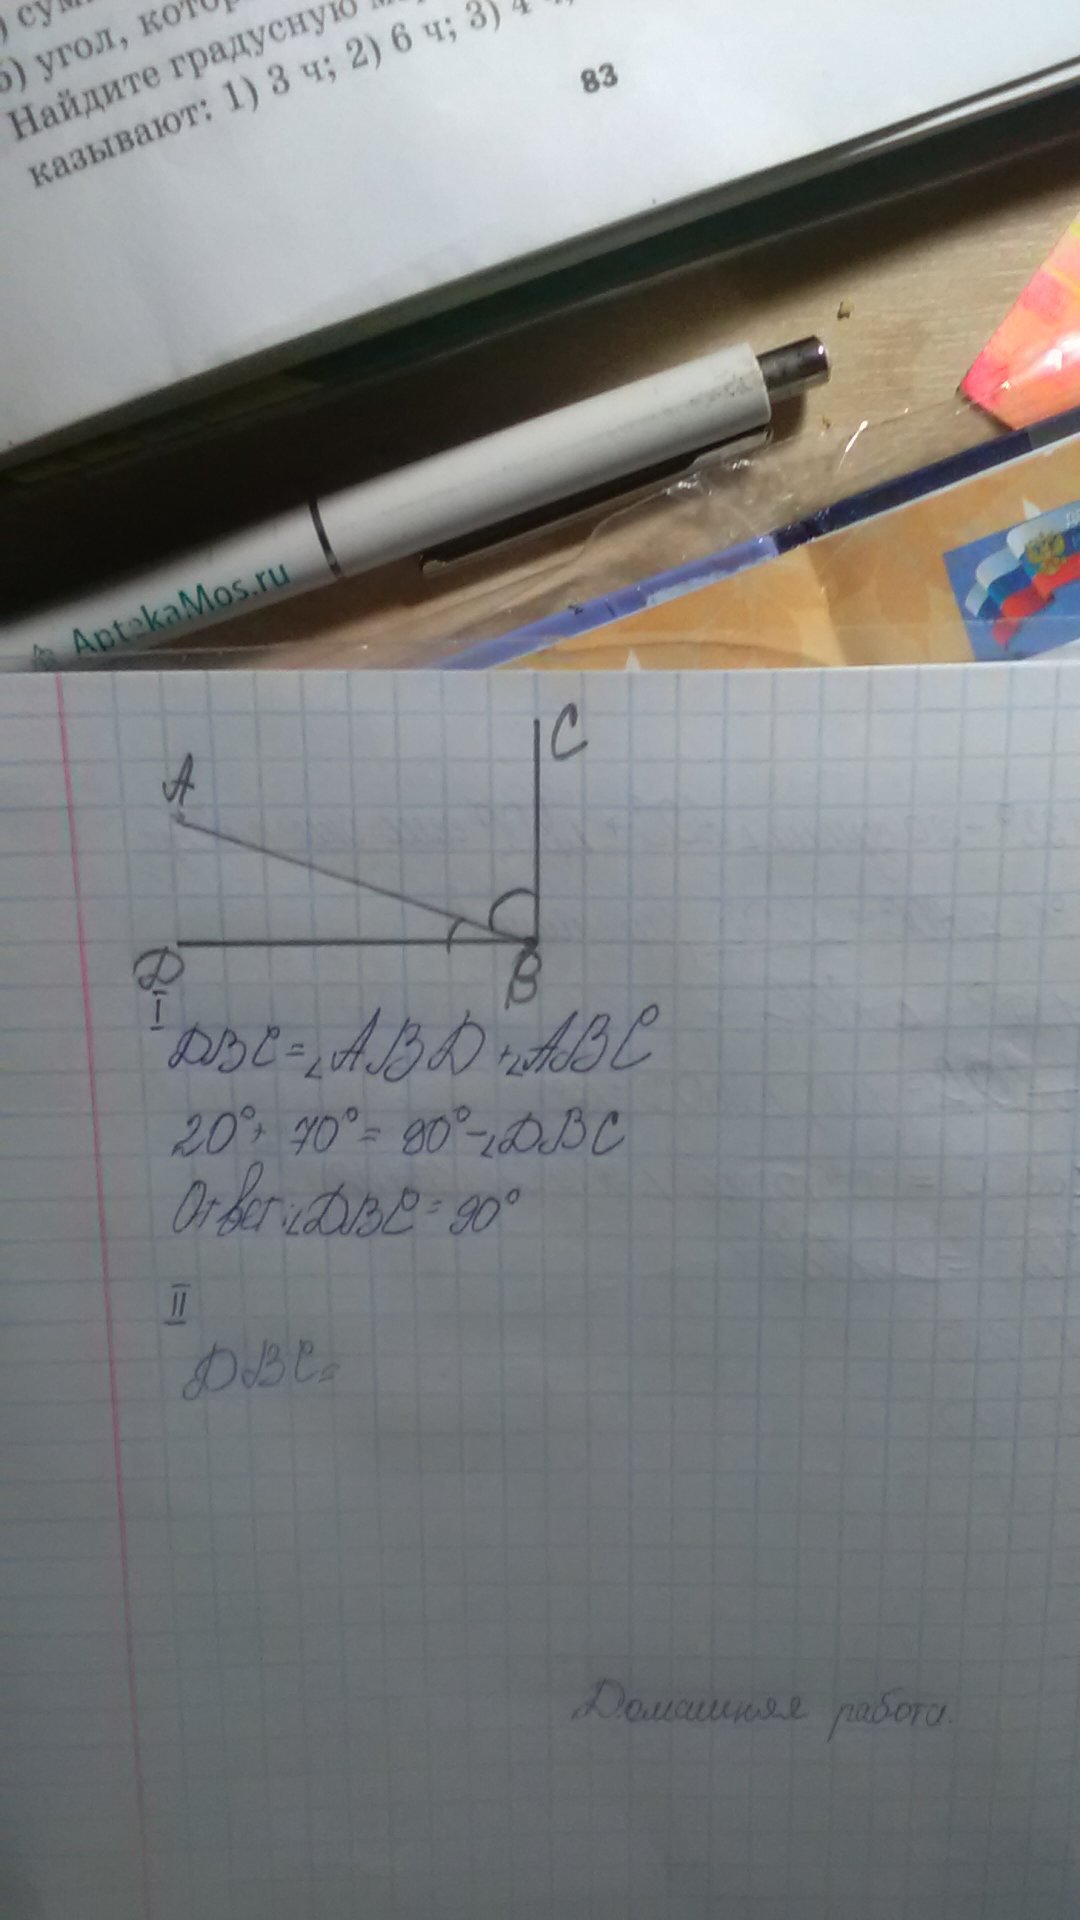 ) сум
б) угол, котор
Найдите градусную
казывают: 1) 3 ч; 2) 6 ч; 3) 4
83
AptekaMos.ru
A
C
D
B
I
DBC=∠ABD+∠ABC
20°+ 70°= 90°-∠DBC
Ответ:∠DBC=90°
II
DBC=
Домашняя работа.